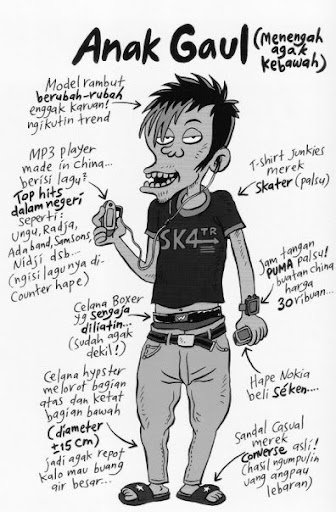 Anak Gaul (Menengah
agak
kebawah)
Model rambut
berubah-rubah
enggak karuan!
ngikutin trend
MP3 player
made in China...
berisi lagu²
Top hits
dalam negeri
seperti:
Ungu, Radja,
Ada band, Samsons,
Nidji dsb...
(ngisi lagunya di-
Counter hape)
T-shirt Junkies
merek
Skater (palsu)
SK4TR
Jam tangan
PUMA palsu!
buatan china
harga
30 ribuan...
Celana Boxer
yg sengaja
diliatin...
(sudah agak
dekil!)
Hape Nokia
beli séken....
Celana hypster
melorot bagian
atas dan ketat
bagian bawah
(diameter
±15 cm)
jadi agak repot
kalo mau buang
air besar...
Sandal Casual
merek
Converse asli!
(hasil ngumpulin
uang angpau
lebaran)